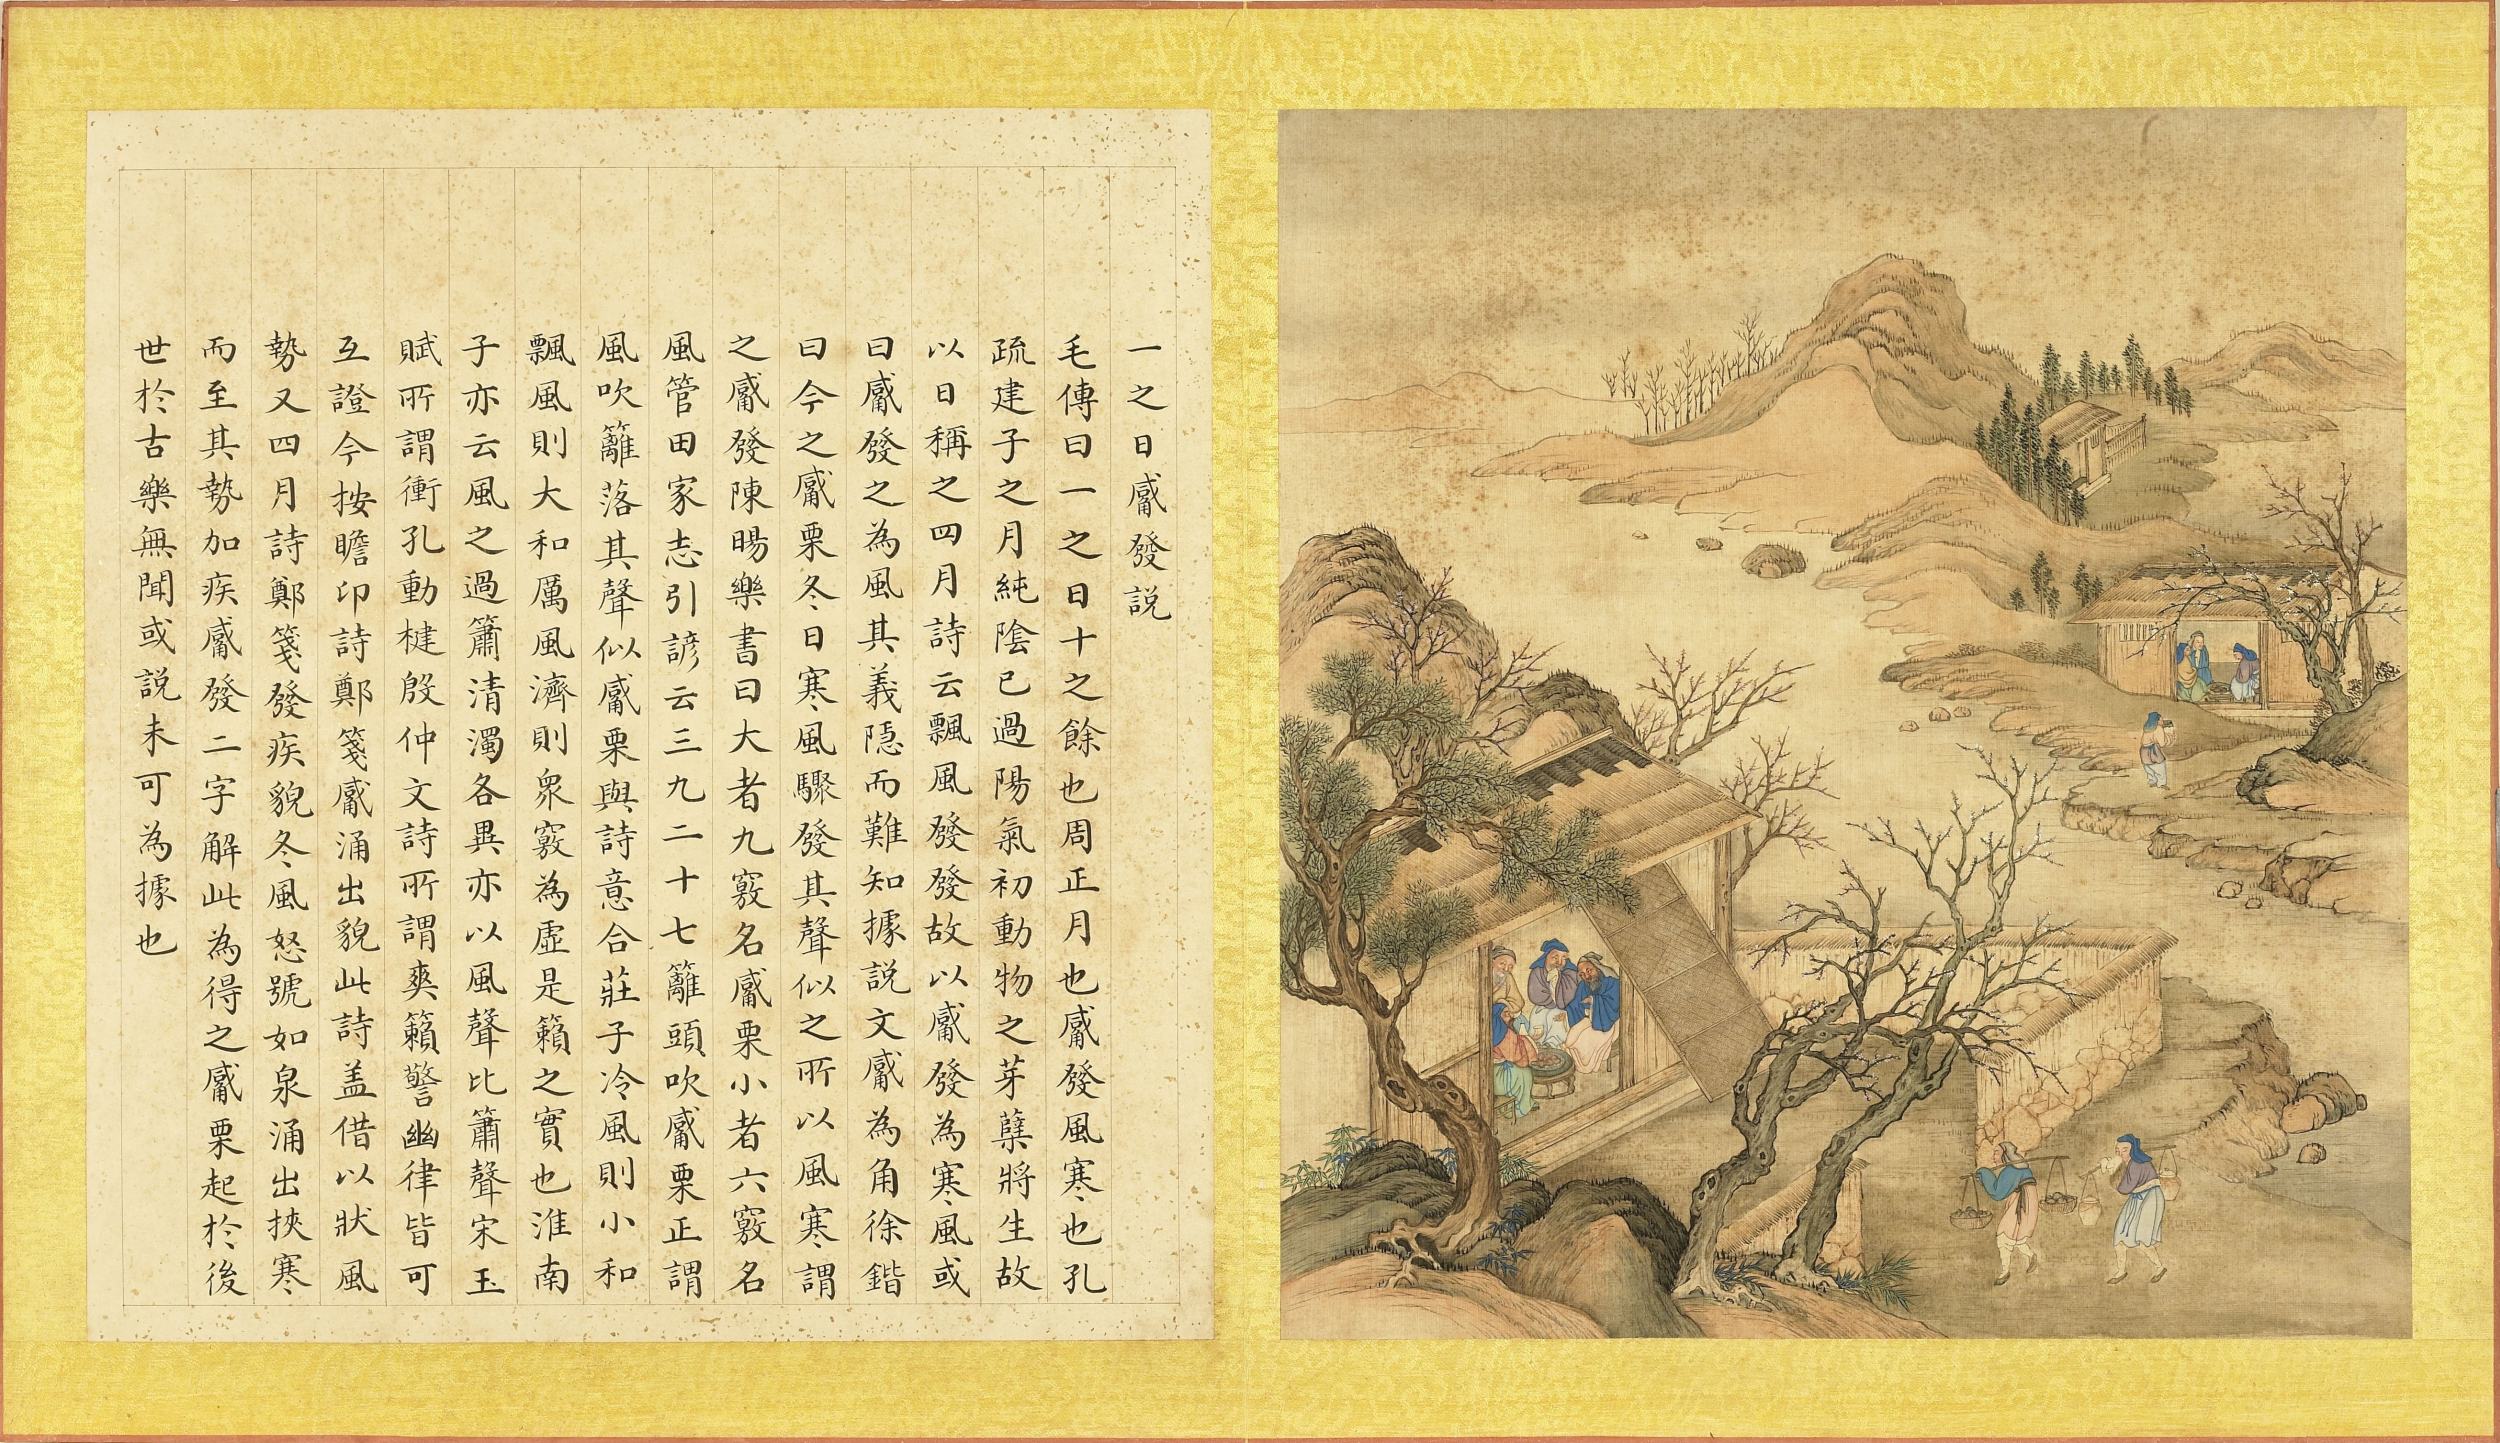 一之日觱發説
毛傳曰一之日十之餘也周正月也觱發風寒也孔
疏建子之月純陰已過陽氣初動物之芽蘖將生故
以日稱之四月詩云飄風發發故以觱發為寒風或
曰觱發之為風其義隠而難知據説文觱為角徐鍇
曰今之觱栗冬日寒風驟發其聲似之所以風寒謂
之觱發陳暘樂書曰大者九竅名觱栗小者六竅名
風管田家志引諺云三九二十七籬頭吹觱栗正謂
風吹籬落其聲似觱栗與詩意合莊子冷風則小和
飄風則大和厲風濟則衆竅為虛是籟之實也淮南
子亦云風之過簫清濁各異亦以風聲比簫聲宋玉
賦所謂衝孔動楗殷仲文詩所謂爽籟警幽律皆可
互證今按瞻卬詩鄭箋觱涌出貌此詩盖借以狀風
勢又四月詩鄭箋發疾貌冬風怒號如泉涌出挾寒
而至其勢加疾觱發二字解此為得之觱栗起於後
世於古樂無聞或説未可為據也